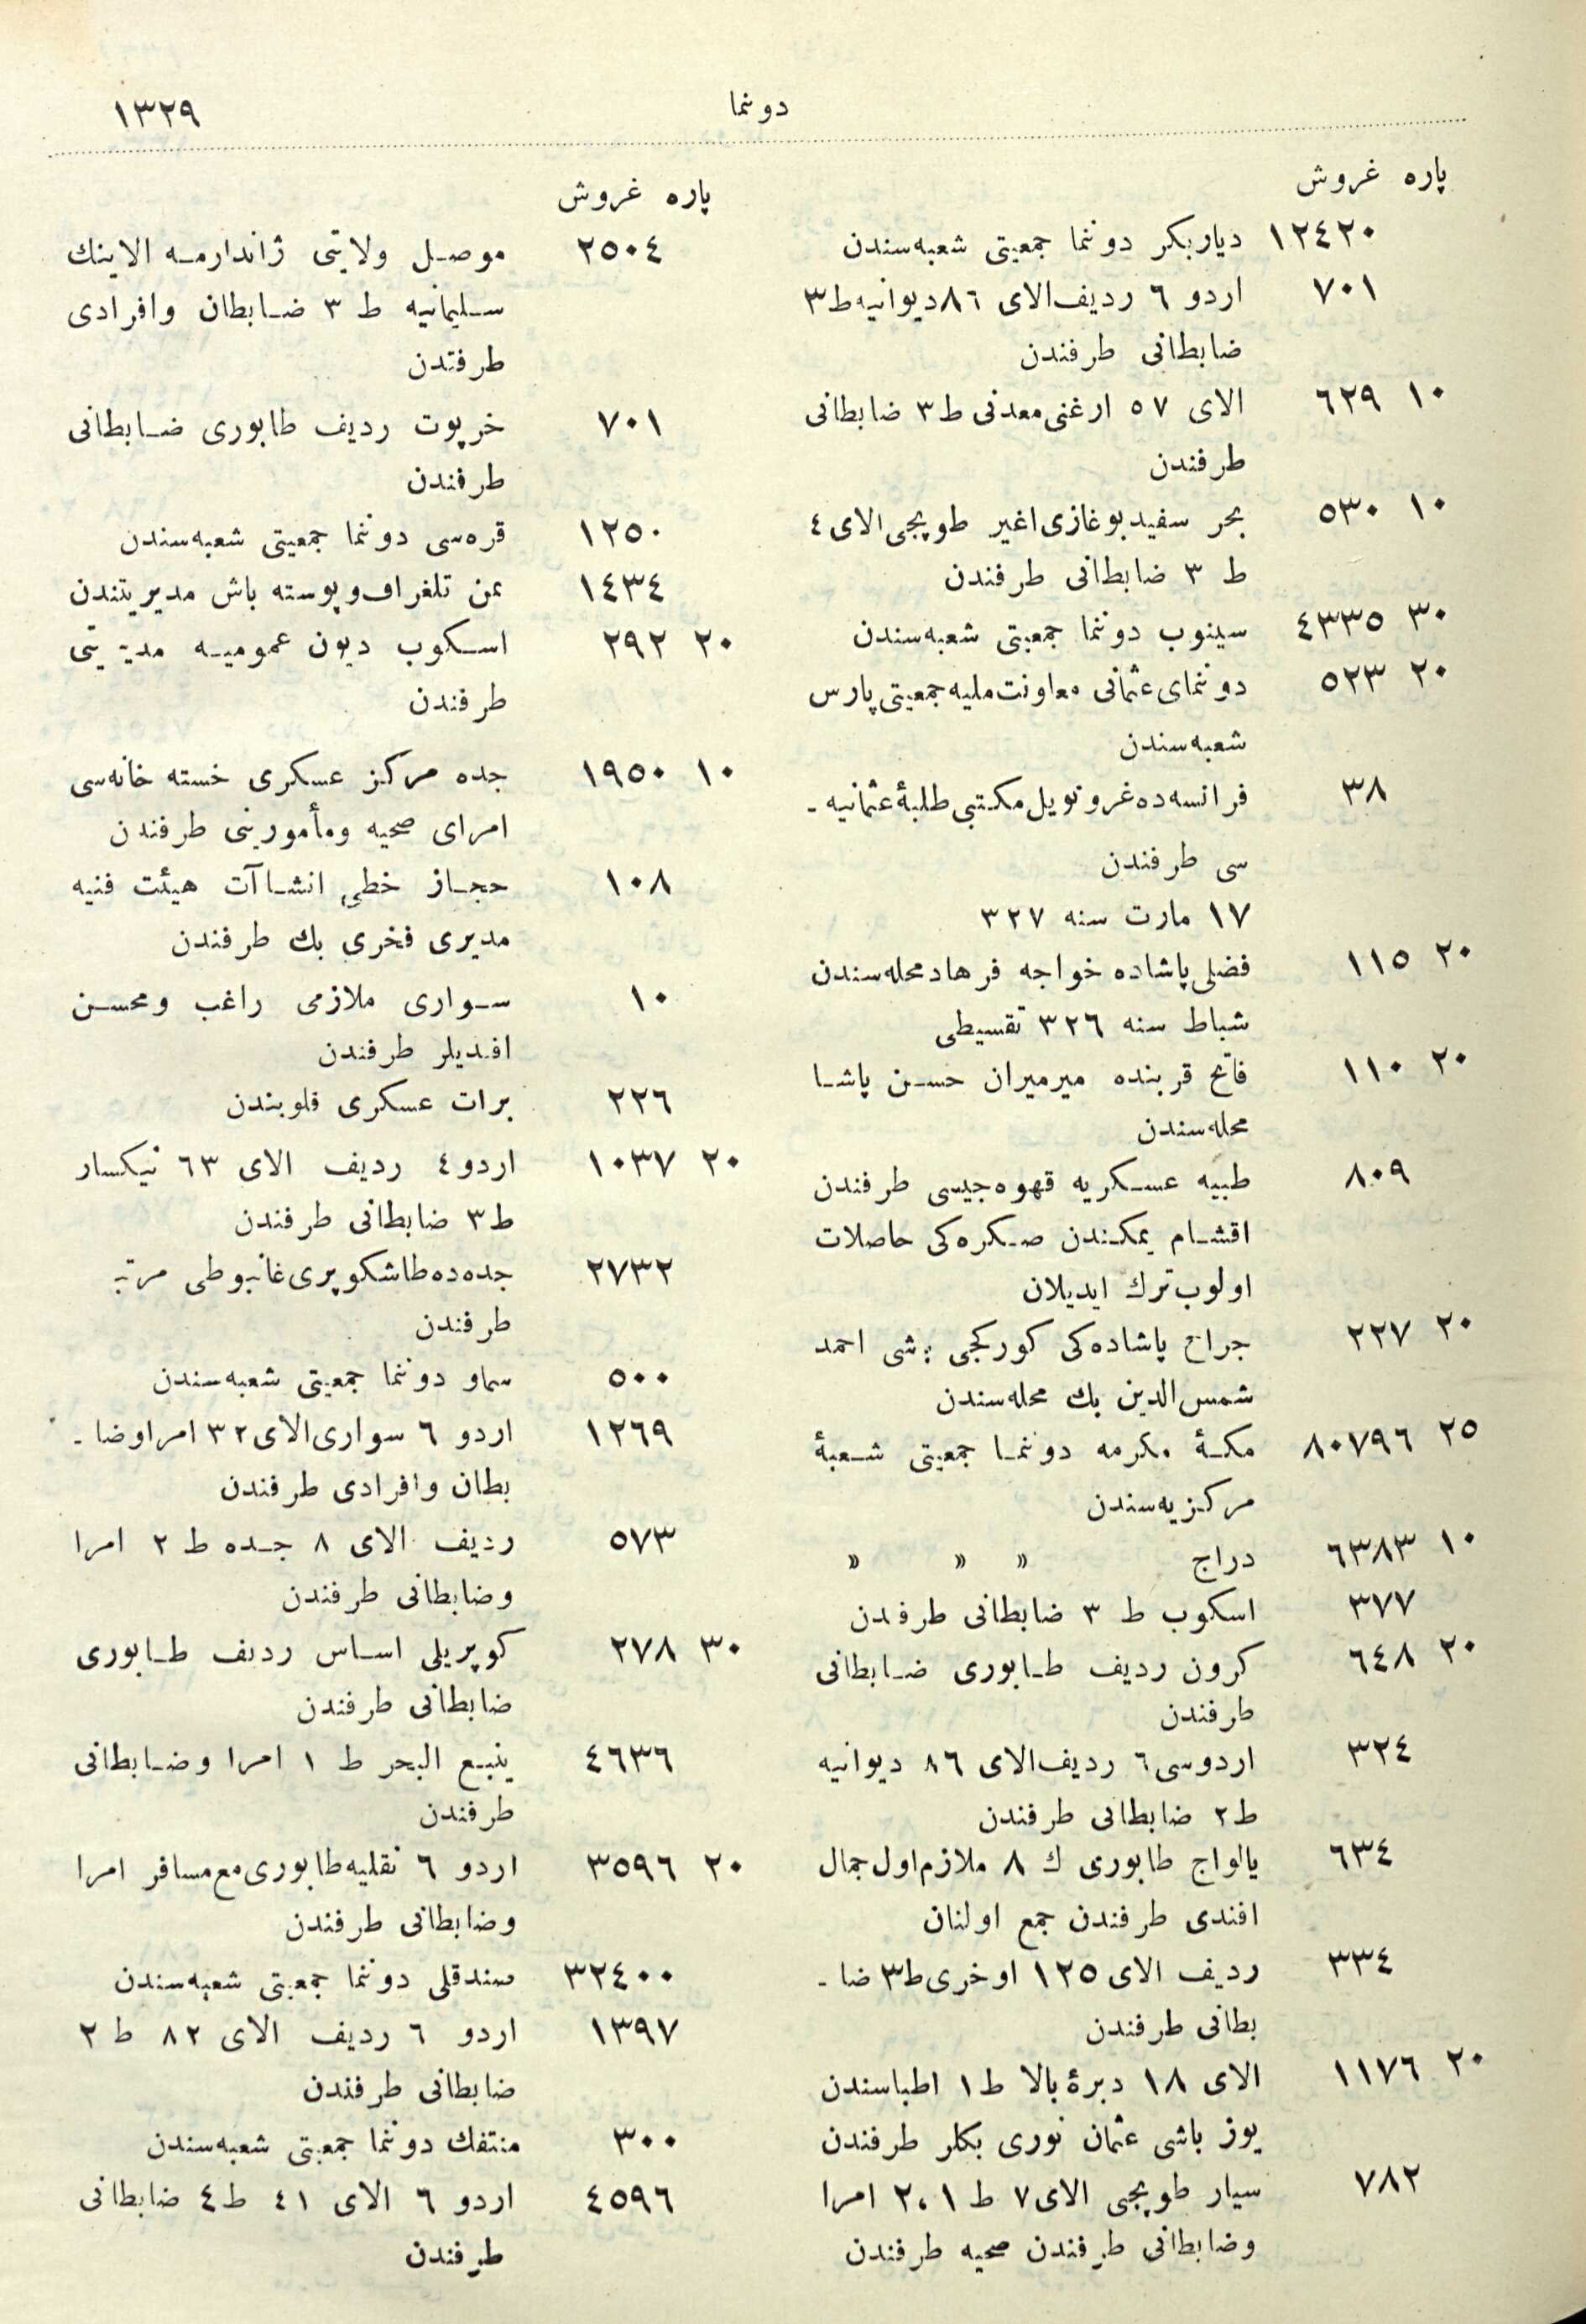 دوننما
١٣٢٩
پاره غروش
١٢٤٢٠ دیاربکر دوننما جمعیتی شعبه‌سندن
٧٠١ اردو ٦ ردیف‌الای ٨٦دیوانیه‌ط٣
ضابطانی طرفندن
١٠ ٦٢٩ الای ٥٧ ارغنی‌معدنی ط٣ ضابطانی
طرفندن
١٠ ٥٣٠ بحر سفیدبوغازی‌اغیر طوپجی‌الای ٤
ط ٣ ضابطانی طرفندن
٣٠ ٤٣٣٥ سینوب دوننما جمعیتی شعبه‌سندن
٢٠ ٥٢٣ دوننمای‌عثمانی معاونت‌ملیه‌جمعیتی‌پارس
شعبه‌سندن
٣٨ فرانسه‌ده‌غرونویل‌مکتبی‌طلبۀعثمانیه-
سی طرفندن
١٧ مارت سنه ٣٢٧
٢٠ ١١٥ فضلی‌پاشاده خواجه فرهادمحله‌سندن
شباط سنه ٣٢٦ تقسیطی
٢٠ ١١٠ فاتح قربنده میرمیران حسن پاشا
محله‌سندن
٨٠٩ طبیه عسکریه قهوه‌جیسی طرفندن
اقشام یمکندن صکره‌کی حاصلات
اولوب‌ترك ایدیلان
٢٠ ٢٢٧ جراح پاشاده‌کی کورکجی شی احمد
شمس‌الدین بك محله‌سندن
٢٥ ٨٠٧٩٦ مکۀ مکرمه دوننما جمعیتی شعبۀ
مرکزیه‌سندن
١٠ ٦٣٨٣ دراج » » »
٣٧٧ اسکوب ط ٣ ضابطانی طرفدن
٢٠ ٦٤٨ کرون ردیف طابوری ضابطانی
طرفندن
٣٢٤ اردوسی٦ ردیف‌الای ٨٦ دیوانیه
ط٢ ضابطانی طرفندن
٦٣٤ یالواج طابوری ك ٨ ملازم‌اول‌جمال
افندی طرفندن جمع اولنان
٣٣٤ ردیف الای ١٢٥ اوخری‌ط٣ ضا-
بطانی طرفندن
٢٠ ١١٧٦ الای ١٨ دبرۀبالا ط١ اطباسندن
یوز باشی عثمان نوری بکلر طرفندن
٧٨٢ سیار طوپجی الای٧ ط ١،٢ امرا
وضابطانی طرفندن صحیه طرفندن
پاره غروش
٢٥٠٤ موصل ولایتی ژاندارمه الاینك
سلیمانیه ط ٣ ضابطان وافرادی
طرفندن
٧٠١ خرپوت ردیف طابوری ضابطانی
طرفندن
١٢٥٠ قره‌سی دوننما جمعیتی شعبه‌سندن
١٤٣٤ یمن تلغراف‌وپوسته باش مدیریتندن
٢٠ ٢٩٢ اسکوب دیون عمومیه
طرفندن
١٠ ١٩٥٠ جده مرکز عسکری خسته خانه‌سی
امرای صحیه ومأمورینی طرفندن
١٠٨ حجاز خطی انشاآت هیئت فنیه
مدیری فخری بك طرفندن
١٠ سواری ملازمی راغب ومحسن
افندیلر طرفندن
٢٢٦ برات عسکری قلوبندن
٢٠ ١٠٣٧ اردو٤ ردیف الای ٦٣ نیکسار
ط٣ ضابطانی طرفندن
٢٧٣٢ جده‌ده‌طاشکوپری‌غانبوطی
طرفندن
٥٠٠ سماو دوننما جمعیتی شعبه‌سندن
١٢٦٩ اردو ٦ سواری‌الای٣٢ امراوضا-
بطان وافرادی طرفندن
٥٧٣ ردیف الای ٨ جده ط ٢ امرا
وضابطانی طرفندن
٣٠ ٢٧٨ کوپریلی اساس ردیف طابوری
ضابطانی طرفندن
٤٦٣٦ ینبع البحر ط ١ امرا وضابطانی
طرفندن
٢٠ ٣٥٩٦ اردو ٦ نقلیه‌طابوری‌مع‌مسافر امرا
وضابطانی طرفندن
٣٢٤٠٠ صندقلی دوننما جمعیتی شعبه‌سندن
١٣٩٧ اردو ٦ ردیف الای ٨٢ ط ٢
ضابطانی طرفندن
٣٠٠ منتفك دوننما جمعیتی شعبه‌سندن
٤٥٩٦ اردو ٦ الای ٤١ ط٤ ضابطانی
طرفندن